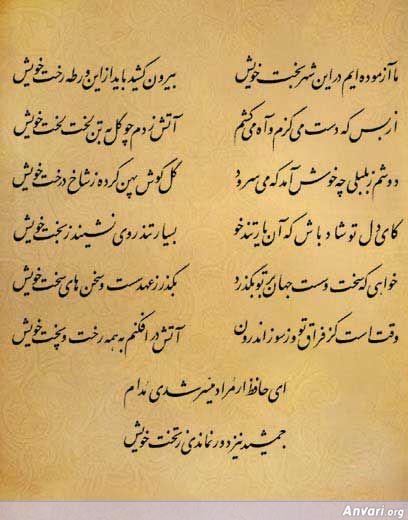 ما آزموده ایم در این شهر بخت خویش بیرون کشید باید از این ورطه رخت خویش
از بس که دست می گزم و آه می کشم آتش زدم چو گل به تن لخت لخت خویش
دوشم ز بلبلی چه خوش آمد که می سرود گل گوش پهن کرده ز شاخ درخت خویش
کای دل تو شاد باش که آن یار تندخو بسیار تند روی نشیند ز بخت خویش
خواهی که سخت و سست جهان بر تو بگذرد بگذر ز عهد سست و سخن های سخت خویش
وقت است کز فراق تو وز سوز اندرون آتش درافکنم به همه رخت و پخت خویش
ای حافظ ار مراد میسر شدی مدام
جمشید نیز دور نماندی ز تخت خویش
Anvari.org